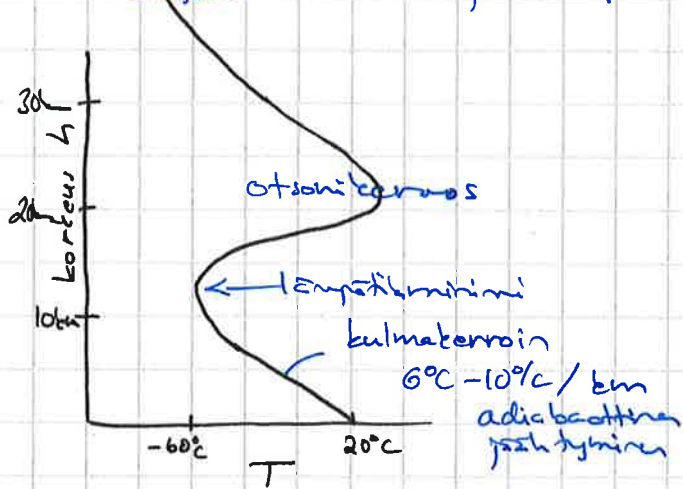 30km
korkeus h
otsonikerros
20km
lämpötilaminimi
10km
kulmakerroin
6°C -10°C / km
adiabaattinen
jäähtyminen
-60°C
20°C
T